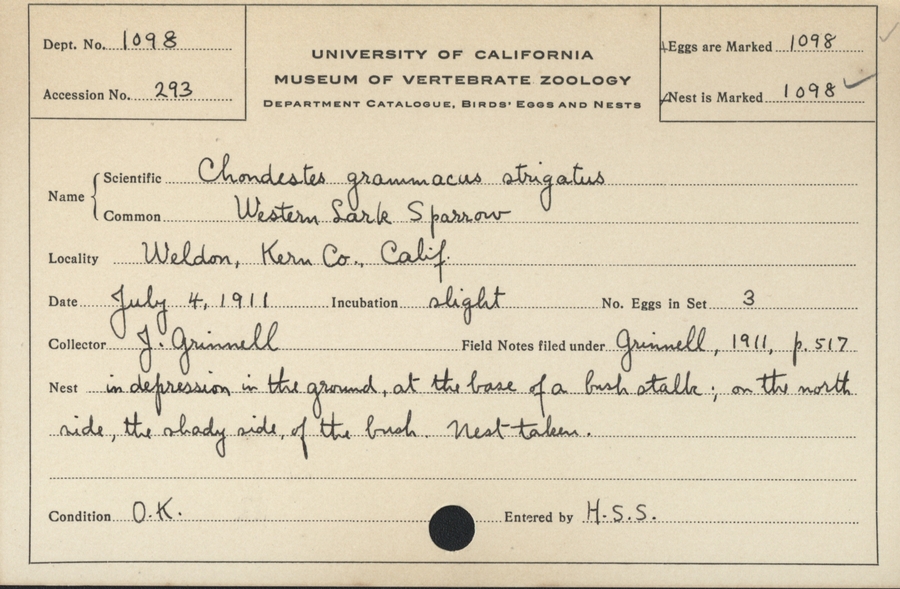 Dept. No. 1098
Accession No. 293
UNIVERSITY OF CALIFORNIA
MUSEUM OF VERTEBRATE ZOOLOGY
DEPARTMENT CATALOGUE, BIRDS' EGGS AND NESTS
Eggs are Marked 1098
Nest is Marked 1098
Name { Scientific Chondestes grammacus strigatus
Common Western Lark Sparrow
Locality Weldon, Kern Co., Calif.
Date July 4, 1911 Incubation slight No. Eggs in Set 3
Collector J. Grinnell Field Notes filed under Grinnell, 1911, p. 517
Nest in depression in the ground, at the base of a bush stalk; on the north
side, the shady side, of the bush. Nest taken.
Condition O.K. Entered by H.S.S.